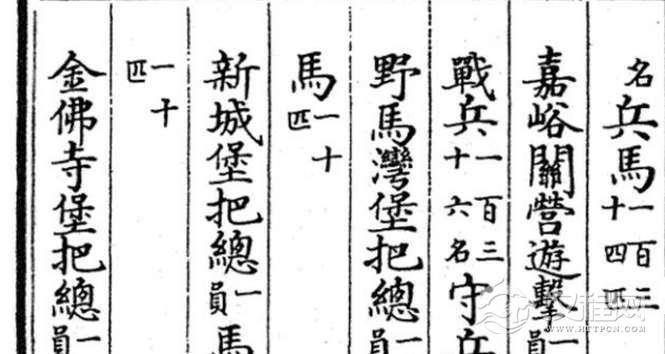 名兵馬一百三十四匹
嘉峪關營遊擊一員
戰兵一百三十六名守兵
野馬灣堡把總一員
馬一十匹
新城堡把總一員馬
一十匹
金佛寺堡把總一員
汉程网
HTTPCN.COM